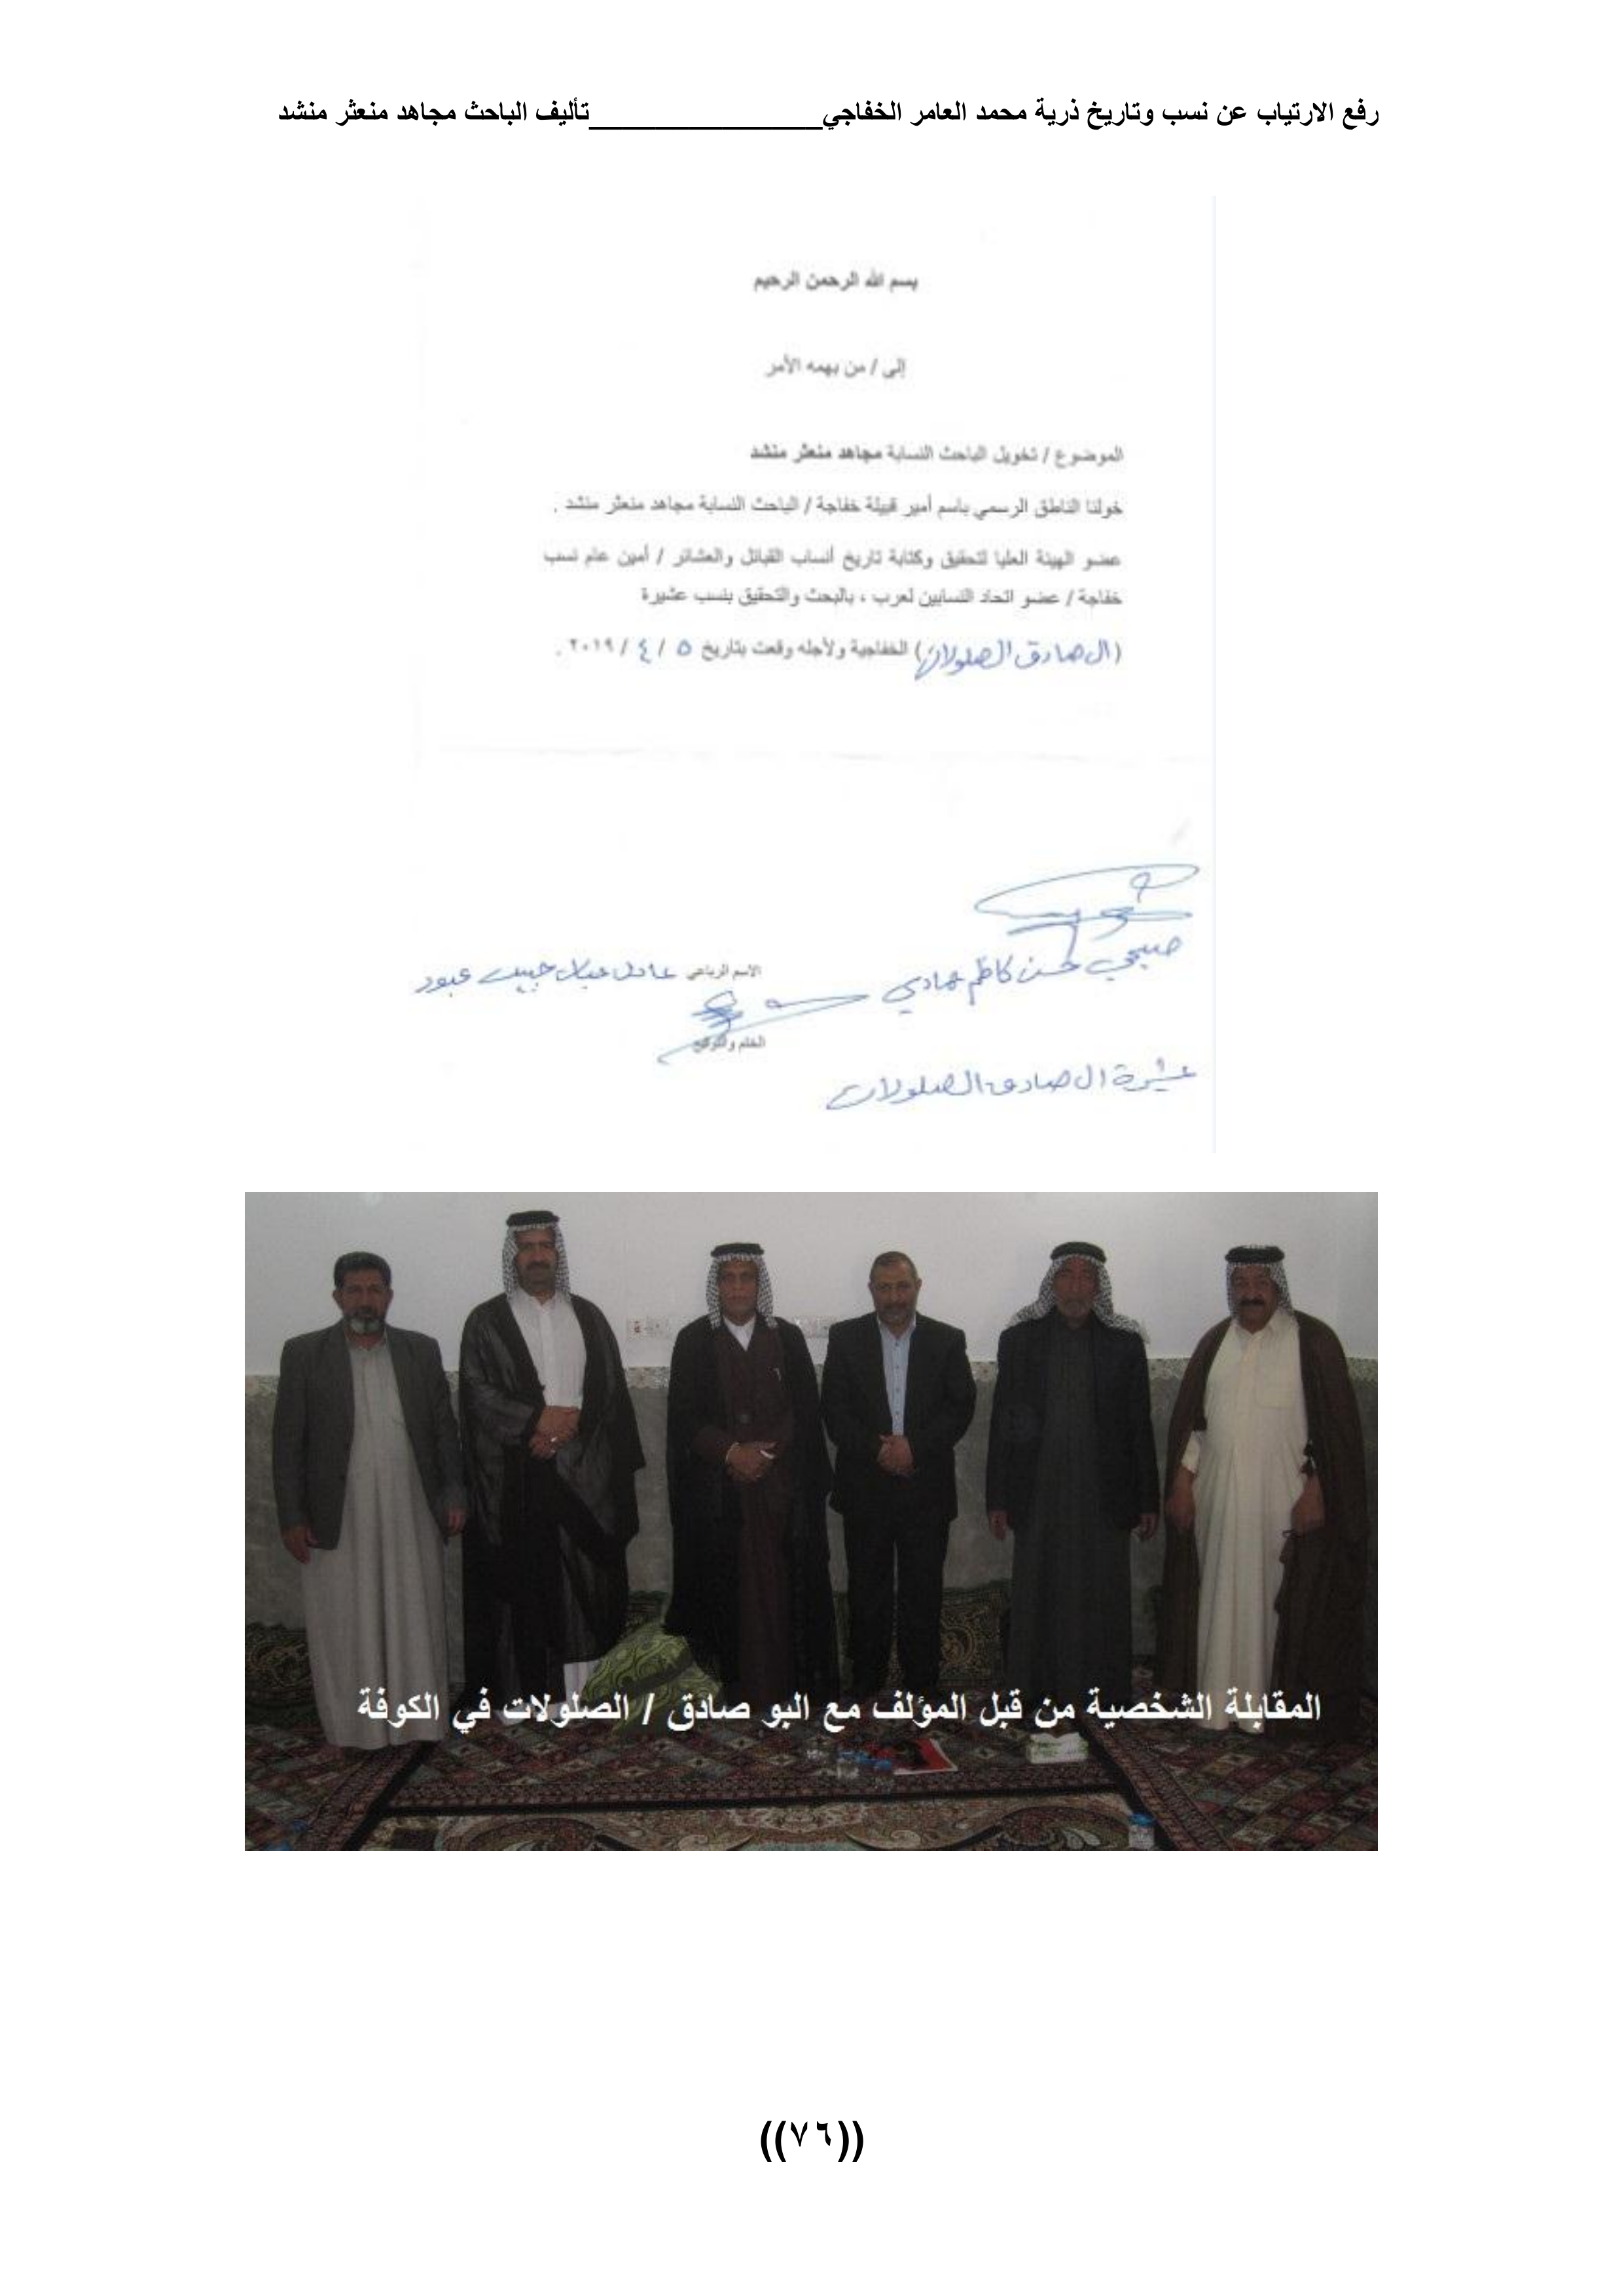 رفع الارتياب عن نسب وتاريخ ذرية محمد العامر الخفاجي________________تأليف الباحث مجاهد منعثر منشد
بسم الله الرحمن الرحيم
إلى / من يهمه الأمر
الموضوع / تخويل الباحث النسابة مجاهد منعثر منشد
خولنا الناطق الرسمي باسم أمير قبيلة خفاجة / الباحث النسابة مجاهد منعثر منشد .
عضو الهيئة العليا لتحقيق وكتابة تاريخ أنساب القبائل والعشائر / أمين عام نسب
خفاجة / عضو اتحاد النسابين لعرب ، بالبحث والتحقيق بنسب عشيرة
(ال صادق الصلولات) الخفاجية ولأجله وقعت بتاريخ ٥ / ٤ / ٢٠١٩ .
صبحي حسن كاظم هادي
الاسم الرباعي عادل حبيب عبود
الختم والتوقيع
عشيرة ال صادق الصلولات
المقابلة الشخصية من قبل المؤلف مع البو صادق / الصلولات في الكوفة
((٧٦))